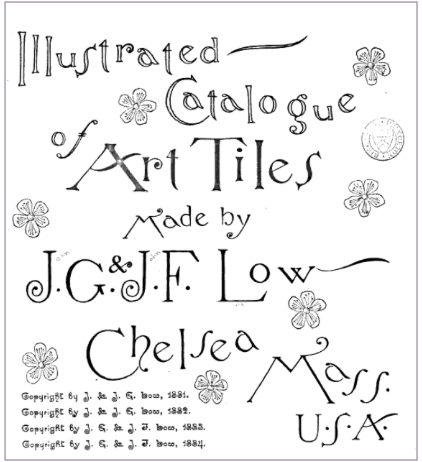 Illustrated
Catalogue
of Art Tiles
Made by
J.G. & J.F. Low
Chelsea
Mass.
U.S.A.
Copyright by J. & J. G. Low, 1881.
Copyright by J. & J. G. Low, 1882.
Copyright by J. G. & J. F. Low, 1883.
Copyright by J. G. & J. F. Low, 1884.